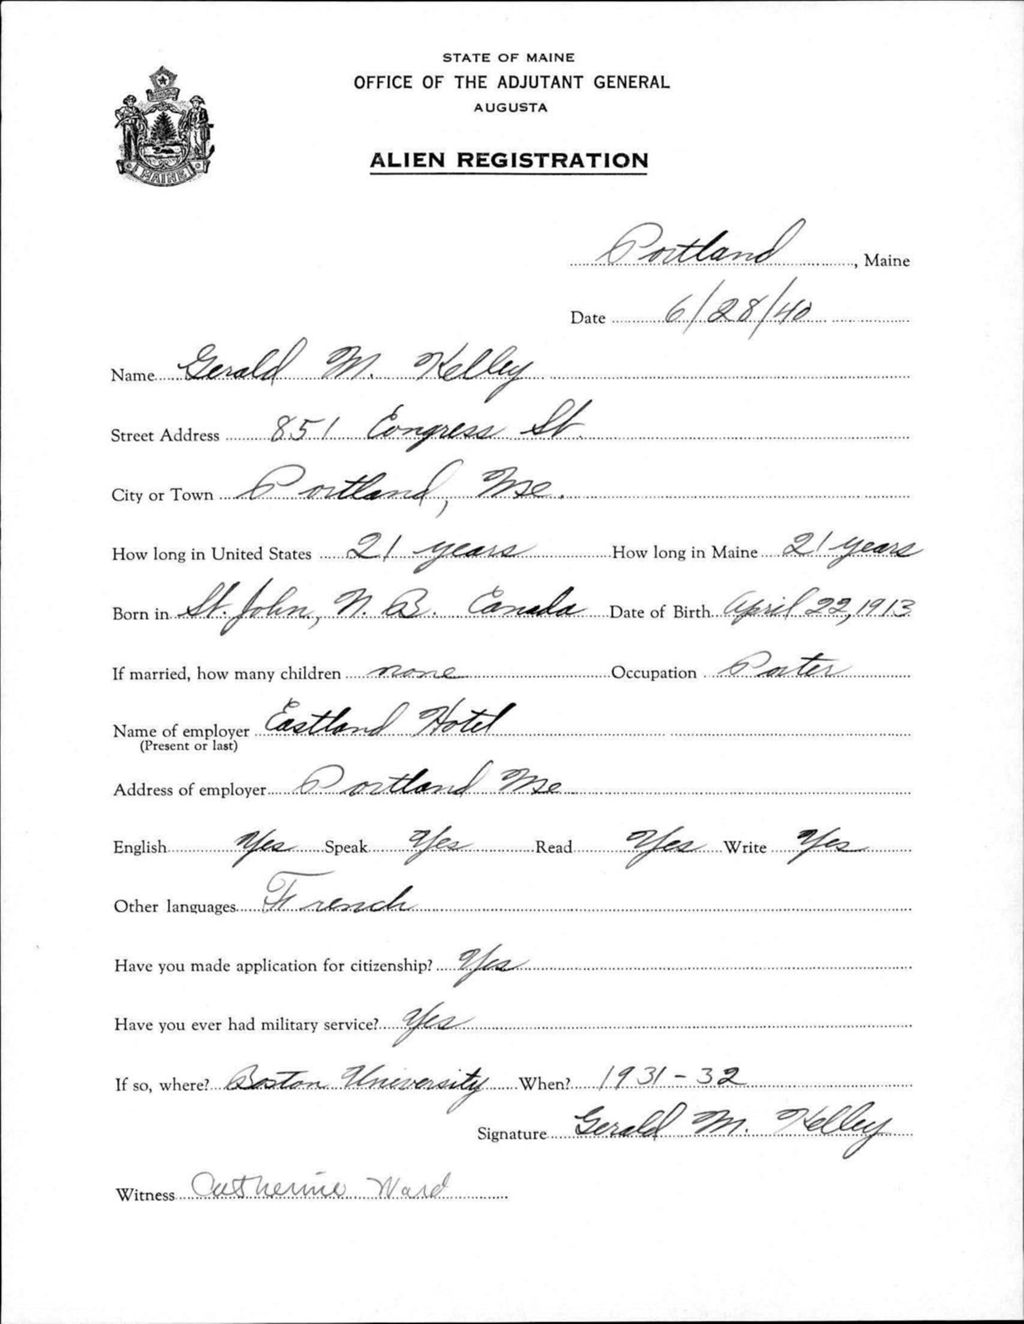 STATE OF MAINE
OFFICE OF THE ADJUTANT GENERAL
AUGUSTA
ALIEN REGISTRATION
MAINE
Portland, Maine
Date 6/28/40
Name Gerald M. Kelley
Street Address 851 Congress St.
City or Town Portland, Me.
How long in United States 21 years How long in Maine 21 years
Born in St. John, N. B. Canada Date of Birth April 22, 1913
If married, how many children none Occupation Porter
Name of employer Eastland Hotel
(Present or last)
Address of employer Portland Me
English Yes Speak Yes Read Yes Write Yes
Other languages French
Have you made application for citizenship? Yes
Have you ever had military service? Yes
If so, where? Boston University When? 1931-32
Signature Gerald M. Kelley
Witness Catherine Ward